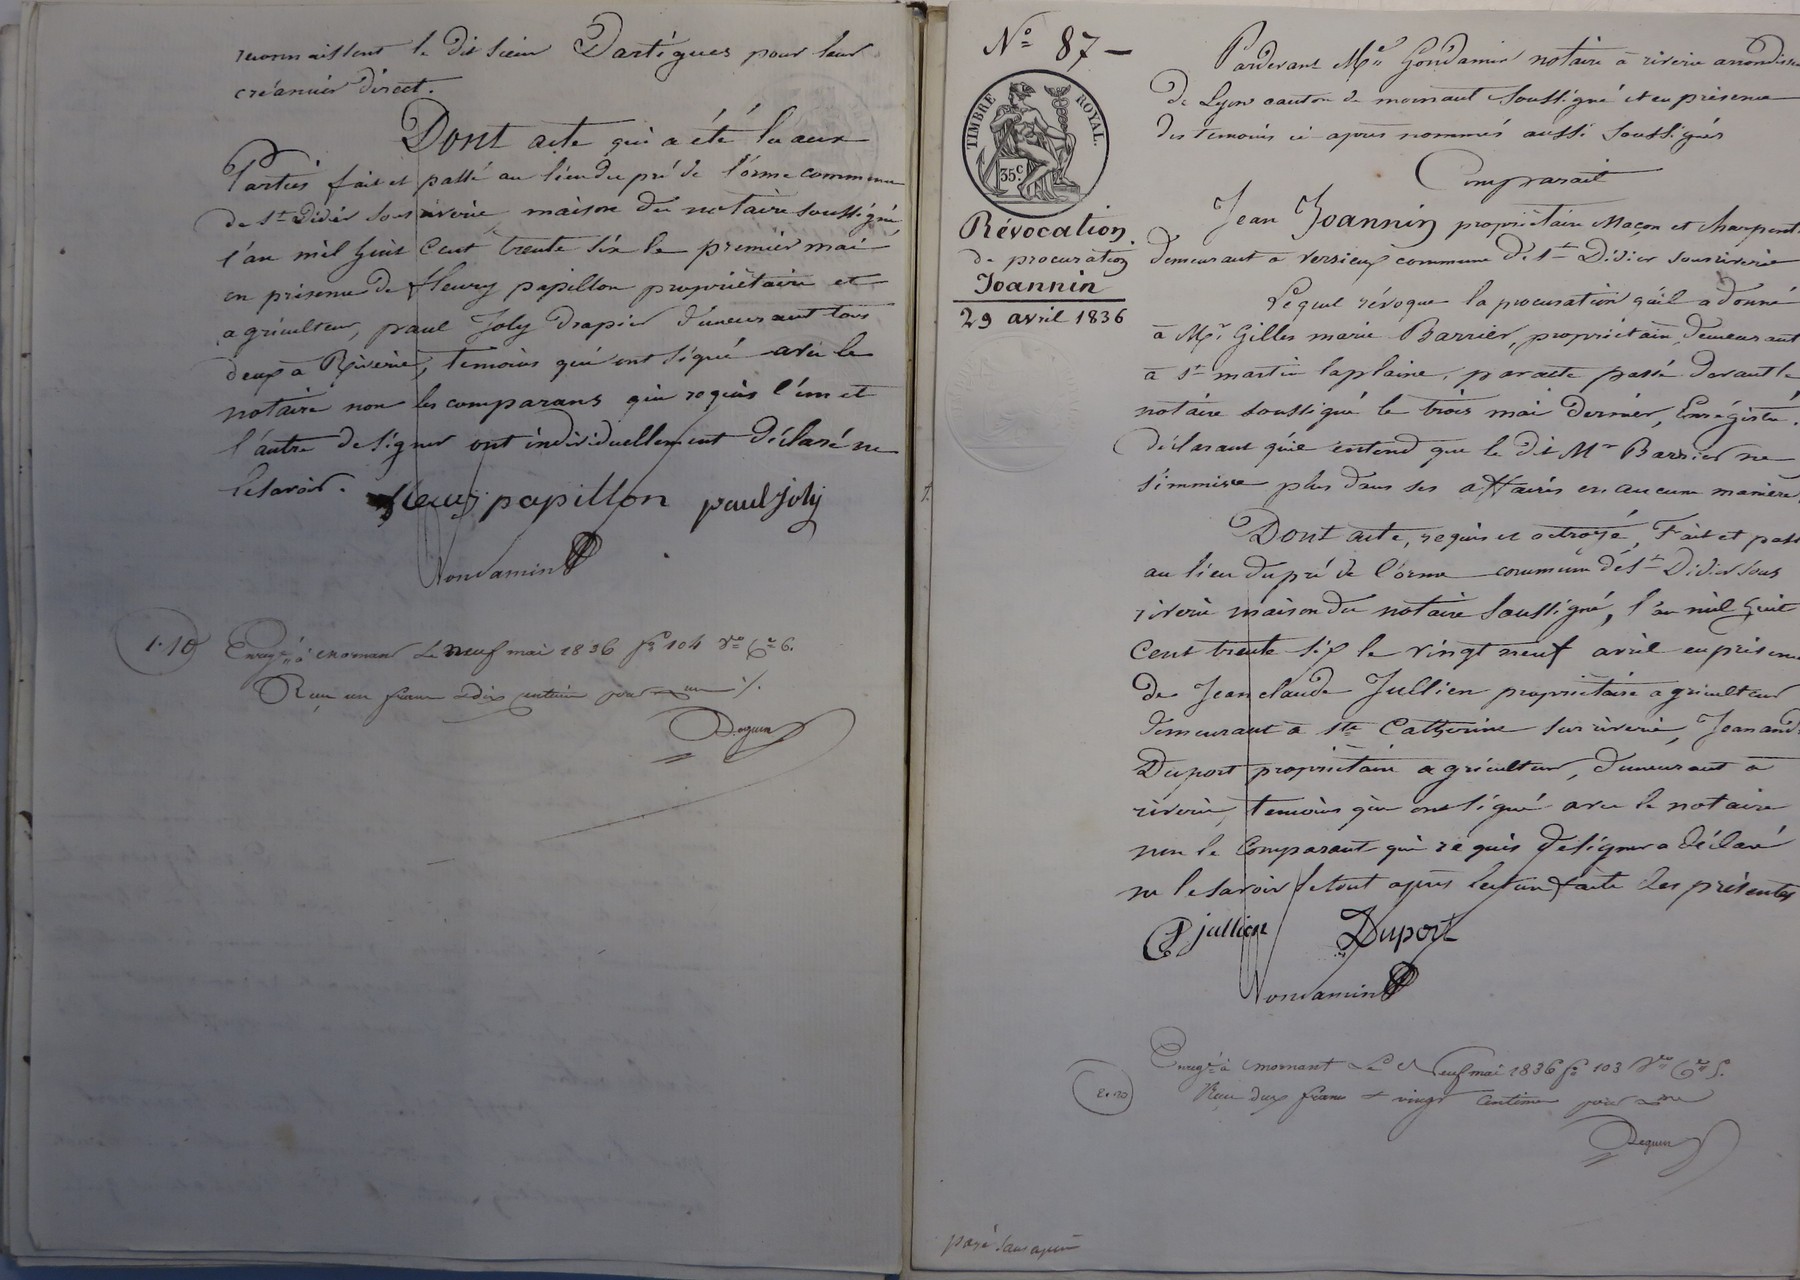 reconnaissent le dit sieur Dartigues pour leur
créancier direct.
Dont acte qui a été lu aux
Parties fait et passé au lieu du pré de l'orme commune
de St Didier sous riverie maison du notaire soussigné
l'an mil huit Cent trente six le premier mai
en présence de fleury papillon propriétaire et
agriculteur, paul Joly Drapier demeurant tous
deux à Riverie, temoins qui ont signé avec le
notaire non les comparans qui requis l'un et
l'autre de signer ont individuellement déclaré ne
le savoir.
fleury papillon paul joly
Gondamin
1.10
Enregé à Mornant Le neuf mai 1836 fo 104 Vo Ce 6.
Reçu un franc dix centimes pour
Dequin
No 87 —
TIMBRE ROYAL.
35c
Révocation
de procuration
Joannin
29 avril 1836
Pardevant Me Gondamin notaire à riverie arrondisse
de Lyon canton de mornant soussigné et en présence
des temoins ci après nommés aussi soussignés
Comparait
Jean Joannin propriétaire Maçon et charpent
demeurant à Versieux commune de St Didier sous riverie
Lequel révoque la procuration qu'il a donné
à Mr Gilles marie Barrier, propriétaire, demeurant
à St martin laplaine, par acte passé devant le
notaire soussigné le trois mai dernier, Enregistré.
déclarant qu'il entend que le dit Mr Barrier ne
s'immisce plus dans ses affaires en aucune manière
Dont acte, requis et octroyé, Fait et passé
au lieu du pré de l'orme commune de St Didier sous
riverie maison du notaire soussigné, l'an mil huit
Cent trente six le vingt neuf avril en présence
de Jean claude Jullien propriétaire agriculteur
demeurant à Ste Catherine sur riverie, Jean andé
Duport propriétaire agriculteur, demeurant à
riverie, temoins qui ont signé avec le notaire
non le Comparant qui requis de signer a déclaré
ne le savoir le tout après lecture faite des présentes
jullien Duport
Gondamin
2.20
Enregé à mornant Le Neuf mai 1836 fo 103 Vo Ce 5.
Reçu deux francs vingt centimes pour
Dequin
payé